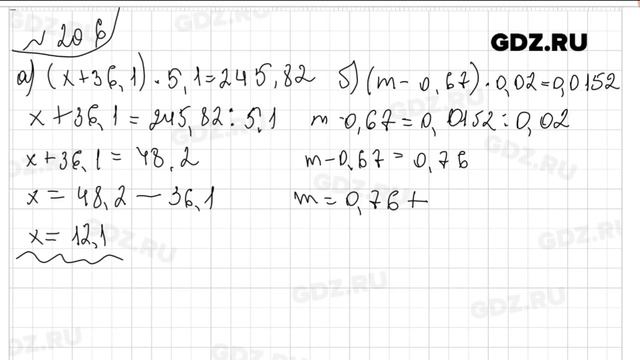 № 206
GDZ.RU
а) (x+36,1)·5,1=245,82
x+36,1=245,82:5,1
x+36,1=48,2
x=48,2-36,1
x=12,1
б) (m-0,67)·0,02=0,0152
m-0,67=0,0152:0,02
m-0,67=0,76
m=0,76+
GDZ.RU
GDZ.RU
GDZ.RU
GDZ.RU
GDZ.RU
GDZ.RU
GDZ.RU
GDZ.RU